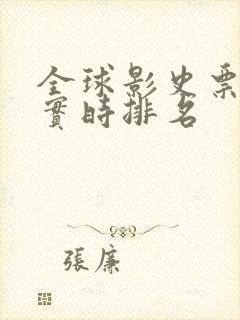 全球影史票
實時排名
張廉